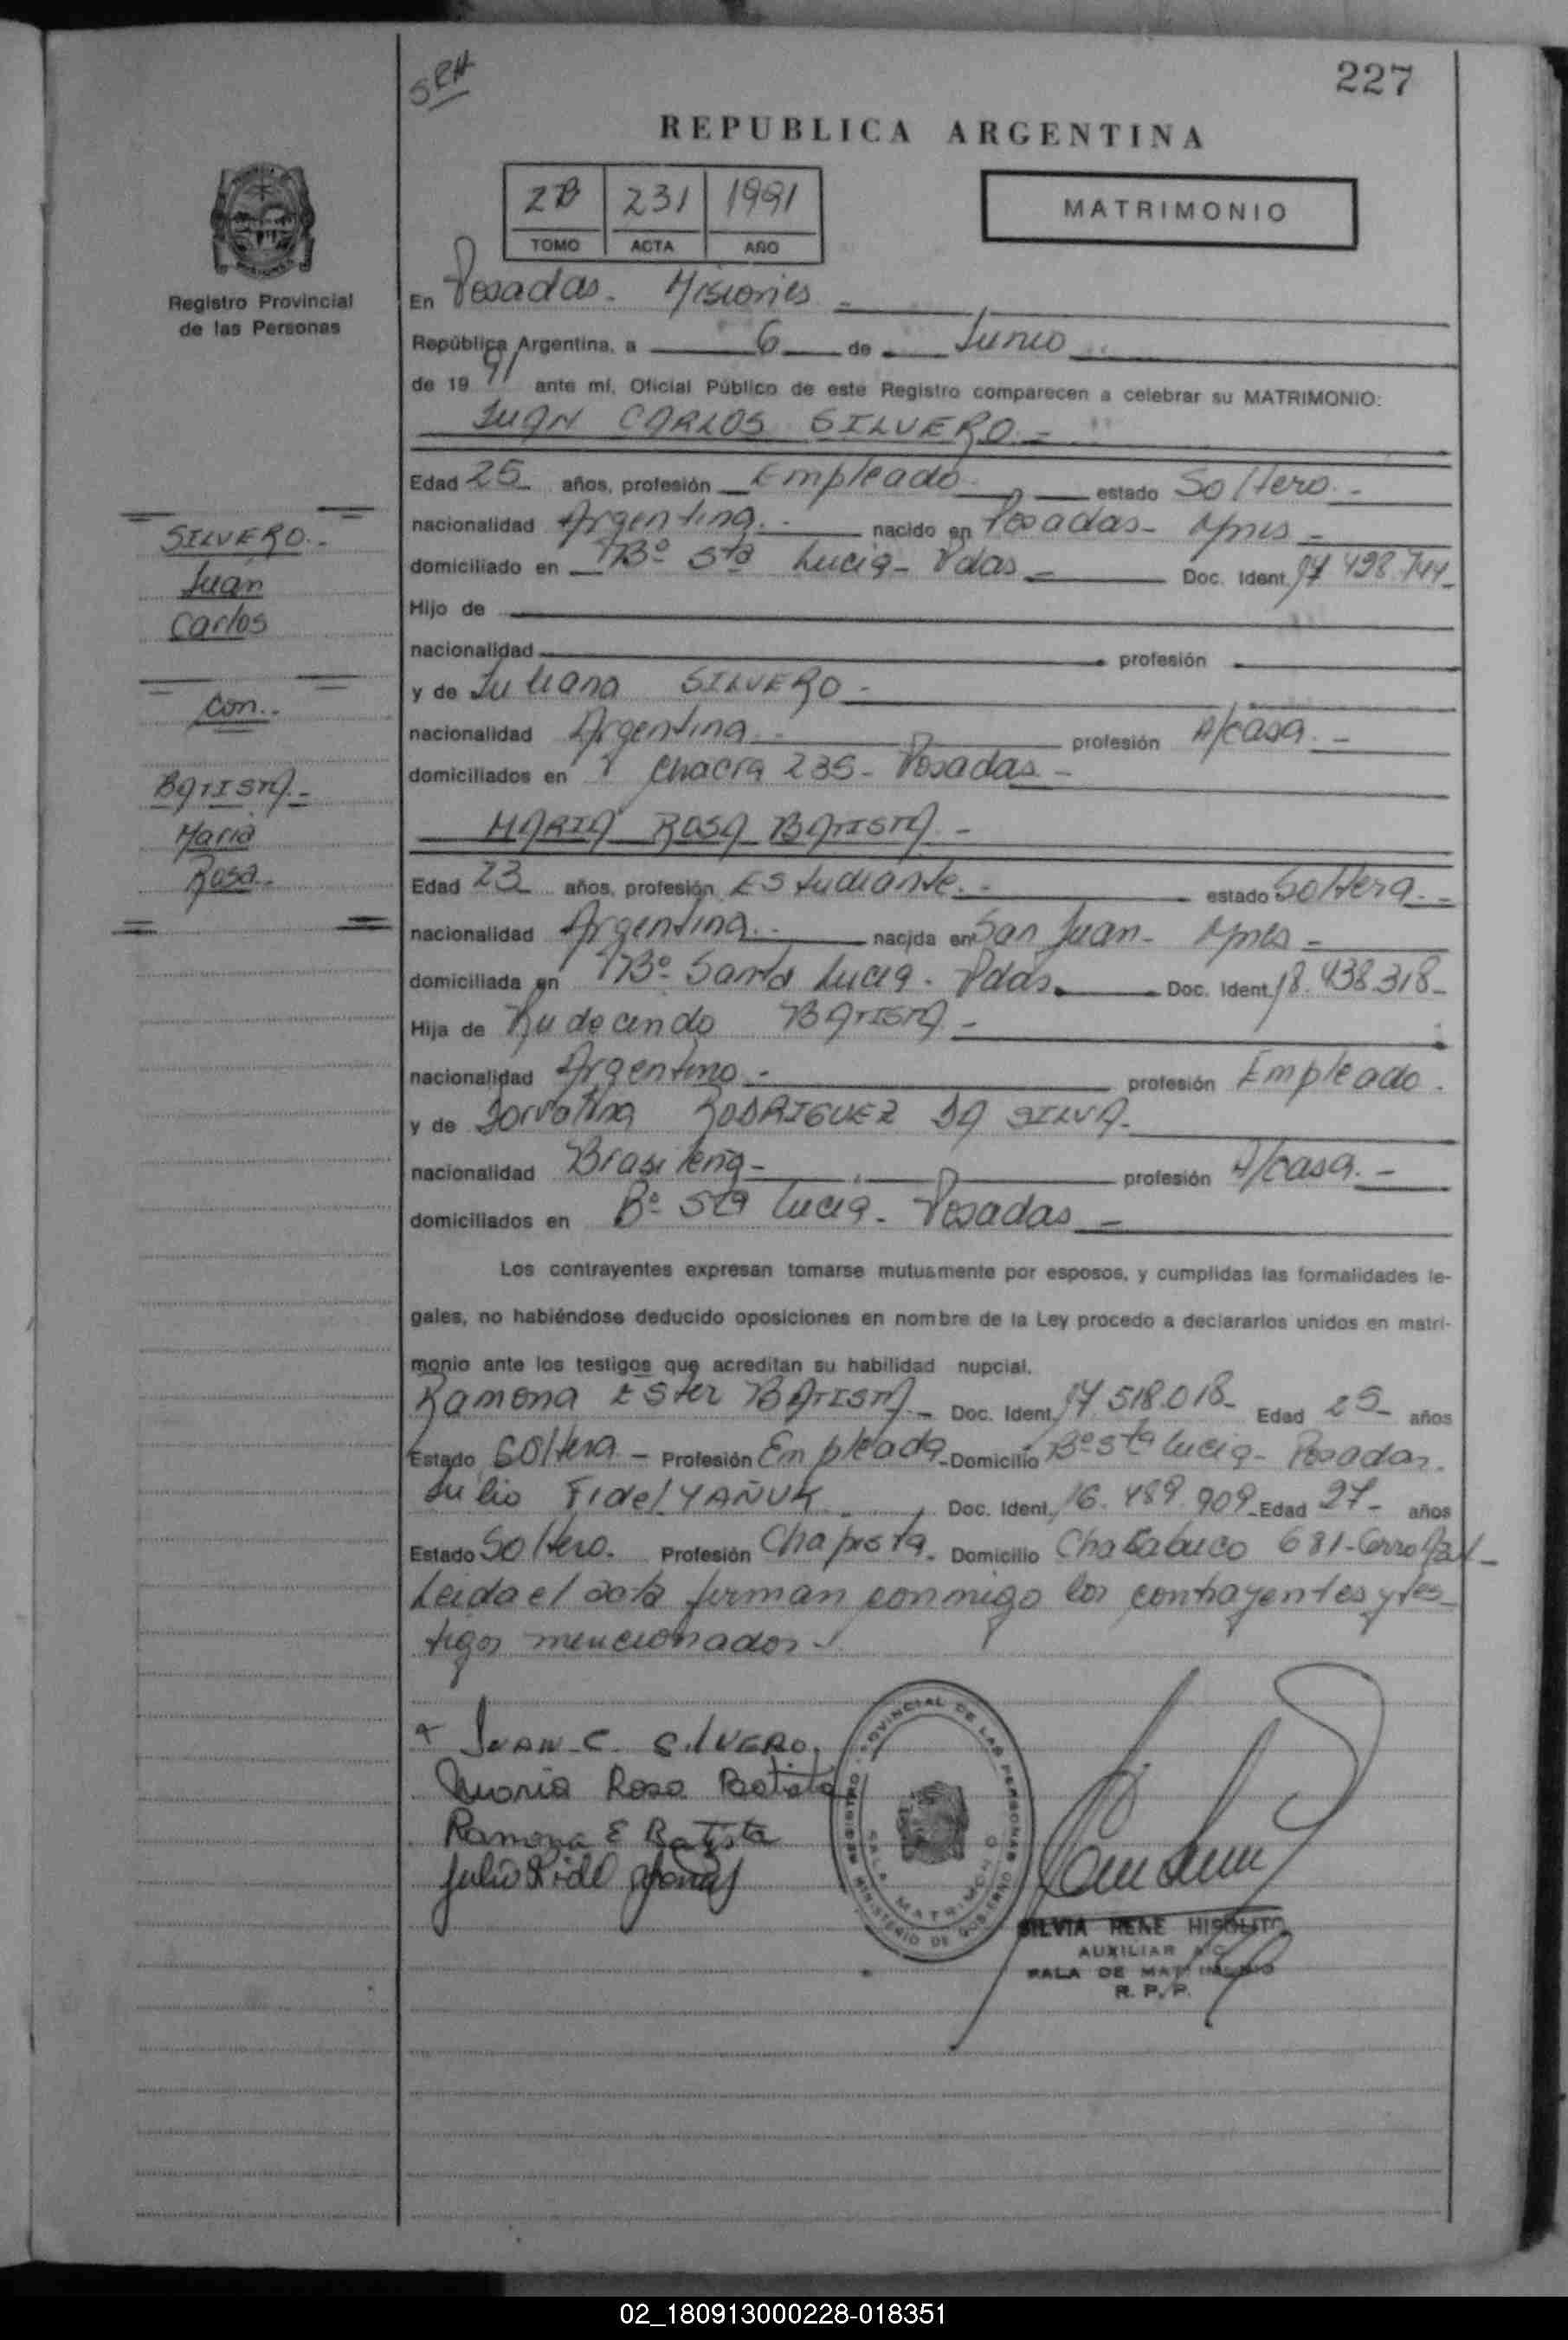 SRH
227
REPUBLICA ARGENTINA
2B 231 1991
TOMO ACTA AÑO
MATRIMONIO
Registro Provincial
de las Personas
En Posadas - Misiones -
República Argentina, a 6 de Junio
de 19 91 ante mí, Oficial Público de este Registro comparecen a celebrar su MATRIMONIO:
JUAN CARLOS SILVERO.-
Edad 25 años, profesión Empleado.- estado Soltero.-
nacionalidad Argentina.- nacido en Posadas- Mnes -
domiciliado en Bº Sta Lucia- Pdas - Doc. Ident. 17 498 744-
Hijo de
nacionalidad profesión
y de Juliana SILVERO -
nacionalidad Argentina.- profesión A/casa.-
domiciliados en Chacra 235- Posadas -
MARIA ROSA BATISTA -
Edad 23 años, profesión Estudiante.- estado Soltera.-
nacionalidad Argentina.- nacida en San Juan- Mnes -
domiciliada en Bº Santa Lucia - Pdas. Doc. Ident. 18.438.318-
Hija de Rudecindo BATISTA -
nacionalidad Argentino - profesión Empleado.
y de Dorvalina RODRIGUEZ DA SILVA-
nacionalidad Brasileña- profesión A/casa.-
domiciliados en Bº Sta Lucia- Posadas -
Los contrayentes expresan tomarse mutuamente por esposos, y cumplidas las formalidades le-
gales, no habiéndose deducido oposiciones en nombre de la Ley procedo a declararlos unidos en matri-
monio ante los testigos que acreditan su habilidad nupcial.
Ramona Ester BATISTA.- Doc. Ident. 17 518.018- Edad 25- años
Estado Soltera - Profesión Empleada- Domicilio Bº Sta Lucia- Posadas.
Julio Fidel YAÑUK Doc. Ident. 16.489.909- Edad 27- años
Estado Soltero. Profesión Chapista. Domicilio Chacabuco 681- Cerro Azul-
Leida el acta firman conmigo los contrayentes y tes-
tigos mencionados.-
JUAN-C. SILVERO.
Maria Rosa Batista
Ramona E Batista
Julio Fidel
REGISTRO PROVINCIAL DE LAS PERSONAS
SALA MATRIMONIO
MINISTERIO DE GOBIERNO
SILVIA RENE HIPOLITO
AUXILIAR A/C
SALA DE MATRIMONIO
R. P. P.
SILVERO.-
Juan
Carlos
con.-
BATISTA-
Maria
Rosa-
02_180913000228-018351